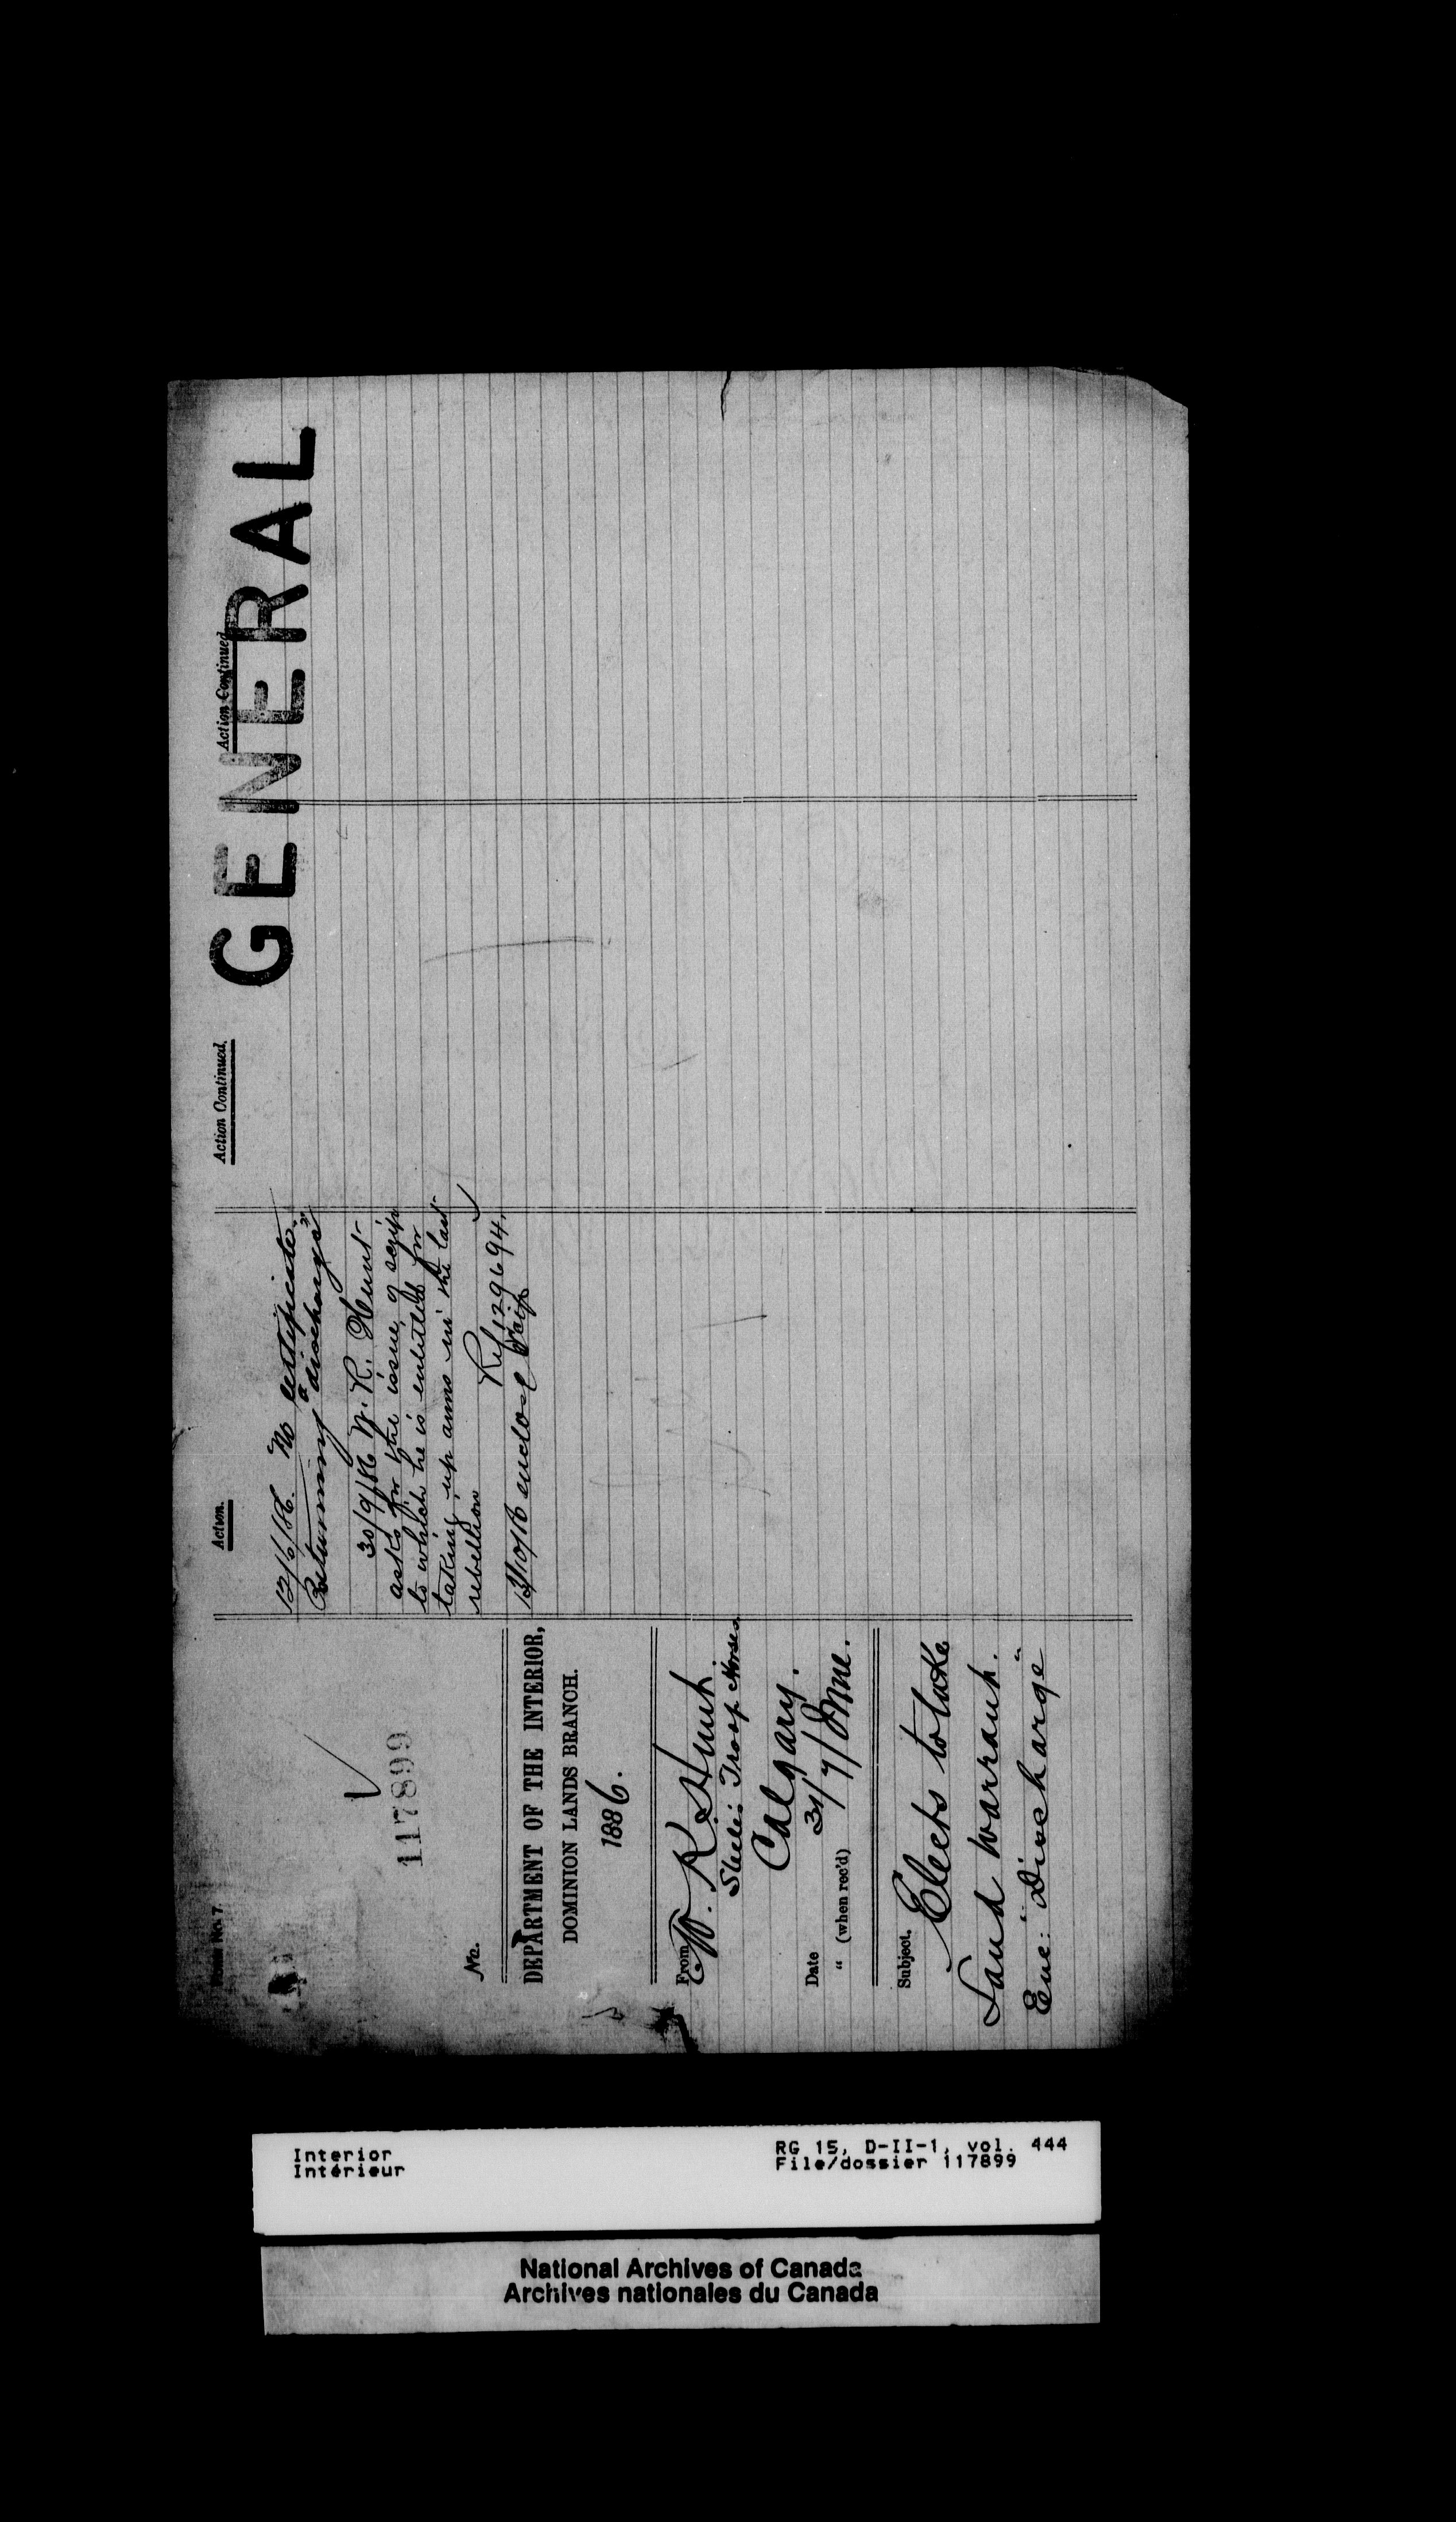 Form No. 7.
117899
No.
DEPARTMENT OF THE INTERIOR,
DOMINION LANDS BRANCH.
1886.
From W. R. Hunt.
Steele's Troop Horses
Calgary.
Date 31/
" (when rec'd) /7/
Subject. Elects to take
Land Warrant.
Enc: "Discharge"
Action.
12/6/86. No certificate.
Returning a discharge"
30/9/86 W. R. Hunt
asks for the issue of scrip
to which he is entitled for
taking up arms in the last
rebellion
Ref 129694.
/10/86 enclose Scrip
Action Continued.
Action Continued.
GENERAL
Interior
Intérieur
RG 15, D-II-1, vol. 444
File/dossier 117899
National Archives of Canada
Archives nationales du Canada